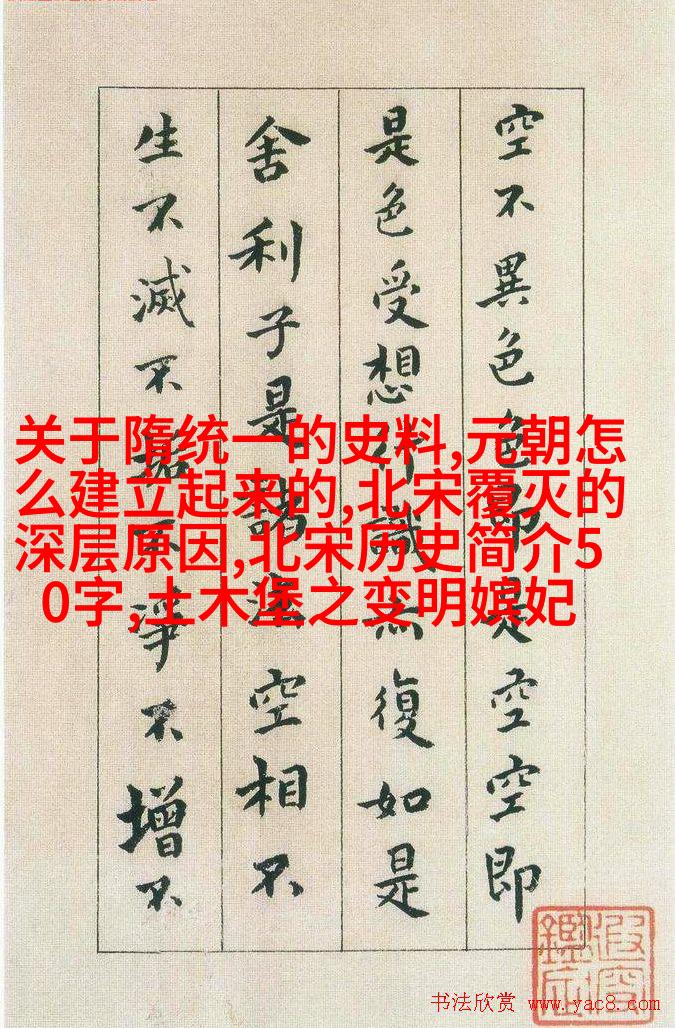 空不異色色即是空空即
是色受想行識亦復如是
舍利子是諸法空相不
生不滅不垢不淨不增不
关于隋统一的史料,元朝怎
么建立起来的,北宋覆灭的
深层原因,北宋历史简介5
0字,土木堡之变明嫔妃
书法欣赏 www.yac8.com